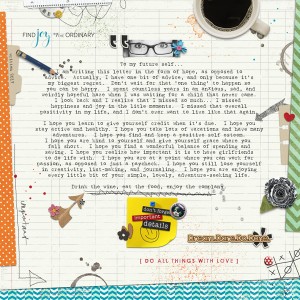 FIND joy IN THE ORDINARY
To my future self...
I am writing this letter in the form of hope, as opposed to
advice. Actually, I have one bit of advice, and only because it's
my biggest regret. Don't wait for that "one thing" to happen so
you can be happy. I spent countless years in an anxious, sad, and
weirdly hopeful haze when I was waiting for a child that never came.
I look back and I realize that I missed so much... I missed
happiness and joy in the little moments. I missed that overall
positivity in my life, and I don't ever want to live like that again.
I hope you learn to give yourself credit when it's due. I hope you
stay active and healthy. I hope you take lots of vacations and have many
adventures. I hope you find and keep a positive self esteem.
I hope you are kind to yourself and give yourself grace when you
fall short. I hope you find a wonderful balance of spending and
saving. I hope you realize how important it is to have girlfriends
to do life with. I hope you are at a point where you can work for
passion, as opposed to just a paycheck. I hope you still lose yourself
in creativity, list-making, and journaling. I hope you are enjoying
every little bit of your simple, lovely, adventure-seeking life.
Drink the wine, eat the food, enjoy the company.
important
don't forget
important
details
Dream.Dare.Do.
[ DO ALL THINGS WITH LOVE ]